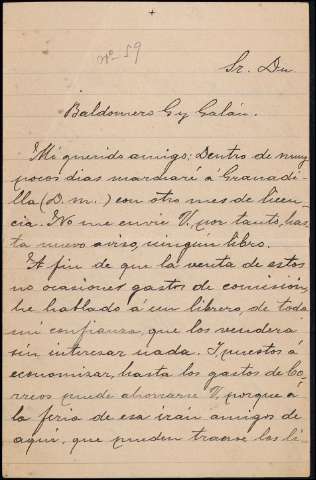 +
nº 59
Sr. Dn
Baldomero Gy Galán.
Mi querido amigo: Dentro de muy
pocos días marcharé á Granadi-
lla (D. m.) con otro mes de licen-
cia. No me envíe V, por tanto, has-
ta nuevo aviso, ningun libro.
A fin de que la venta de estos
no ocasione gastos de comisión,
he hablado á un librero, de toda
mi confianza, que los venderá
sin interesar nada. I puestos á
economizar, hasta los gastos de Co-
rreos puede ahorrarse V, porque á
la feria de esa irán amigos de
aquí, que pueden traerse los li-